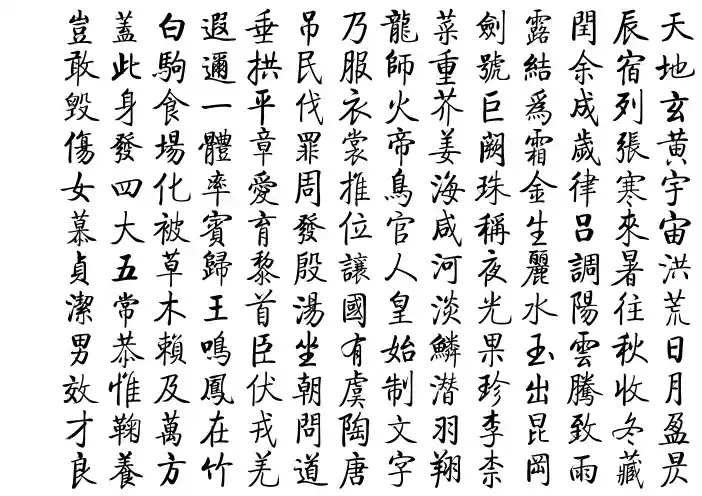 天地玄黃宇宙洪荒日月盈昃
辰宿列張寒來暑往秋收冬藏
閏余成歲律呂調陽雲騰致雨
露結爲霜金生麗水玉出昆岡
劍號巨闕珠稱夜光果珍李柰
菜重芥姜海咸河淡鱗潛羽翔
龍師火帝鳥官人皇始制文字
乃服衣裳推位讓國有虞陶唐
吊民伐罪周發殷湯坐朝問道
垂拱平章愛育黎首臣伏戎羌
遐邇一體率賓歸王鳴鳳在竹
白駒食場化被草木賴及萬方
蓋此身發四大五常恭惟鞠養
豈敢毀傷女慕貞潔男效才良